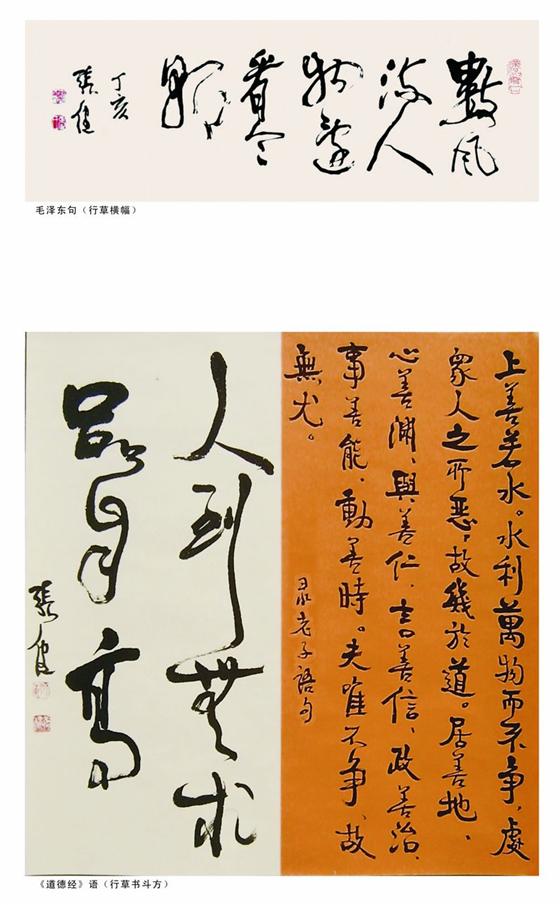 數風
流人
物還
看今
朝
丁亥
毛泽东句（行草横幅）
上善若水。水利萬物而不争，處
衆人之所惡，故幾於道。居善地，
心善渊，與善仁，言善信，政善治，
事善能，動善時。夫唯不争，故
無尤。
录老子語句
人到無求
品自高
《道德经》语（行草书斗方）